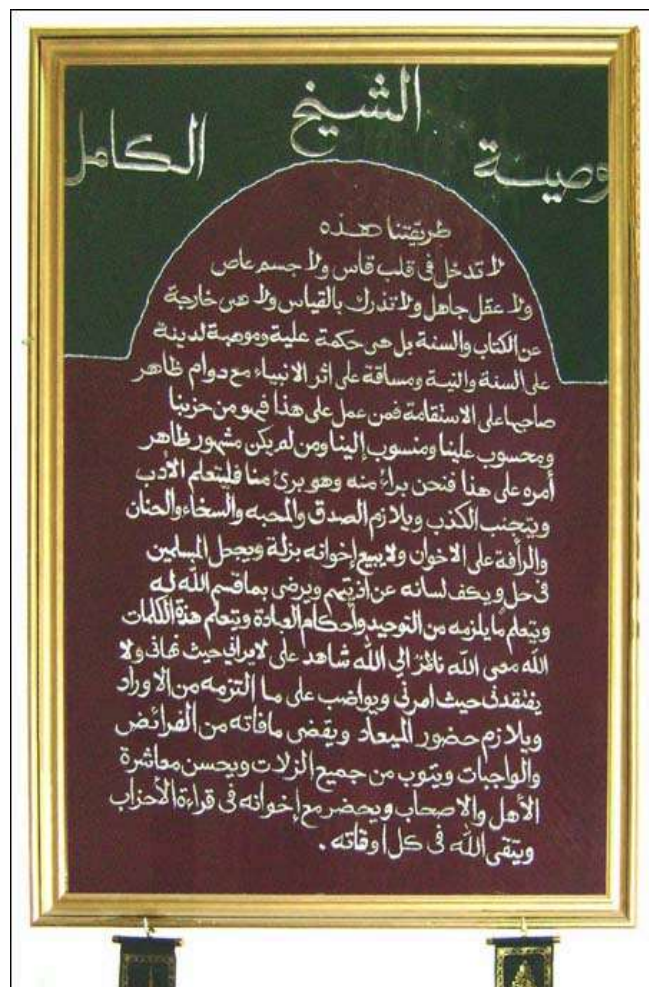 وصية الشيخ الكامل
طريقتنا هذه
لا تدخل في قلب قاس ولا جسم عاص
ولا عقل جاهل ولا تدرك بالقياس ولا هى خارجة
عن الكتاب والسنة بل هى حكمة علية وموهبة لدينة
على السنة والنية ومساقة على اثر الانبياء مع دوام ظاهر
صاحبها على الاستقامة فمن عمل على هذا فهو من حزبنا
ومحسوب علينا ومنسوب إلينا ومن لم يكن مشهور ظاهر
أمره على هذا فنحن براءُ منه وهو برئ منا فليتعلم الأدب
ويتجنب الكذب ويلازم الصدق والمحبه والسخاء والحنان
والرأفة على الاخوان ولا يبيع إخوانه بزلة ويجعل المسلمين
فى حل ويكف لسانه عن اذيتهم ويرضى بما قسم الله له
ويتعلم ما يلزمه من التوحيد وأحكام العبادة ويتعلم هذة الكلمات
الله معى الله ناظرُ الي الله شاهد على لا يراني حيث نهانى ولا
يفتقدنى حيث امرنى ويواضب على ما التزمه من الاوراد
ويلازم حضور الميعاد ويقضى مافاته من الفرائض
والواجبات ويتوب من جميع الزلات ويحسن معاشرة
الأهل والاصحاب ويحضر مع إخوانه فى قراءة الأحزاب
ويتقى الله فى كل اوقاته .